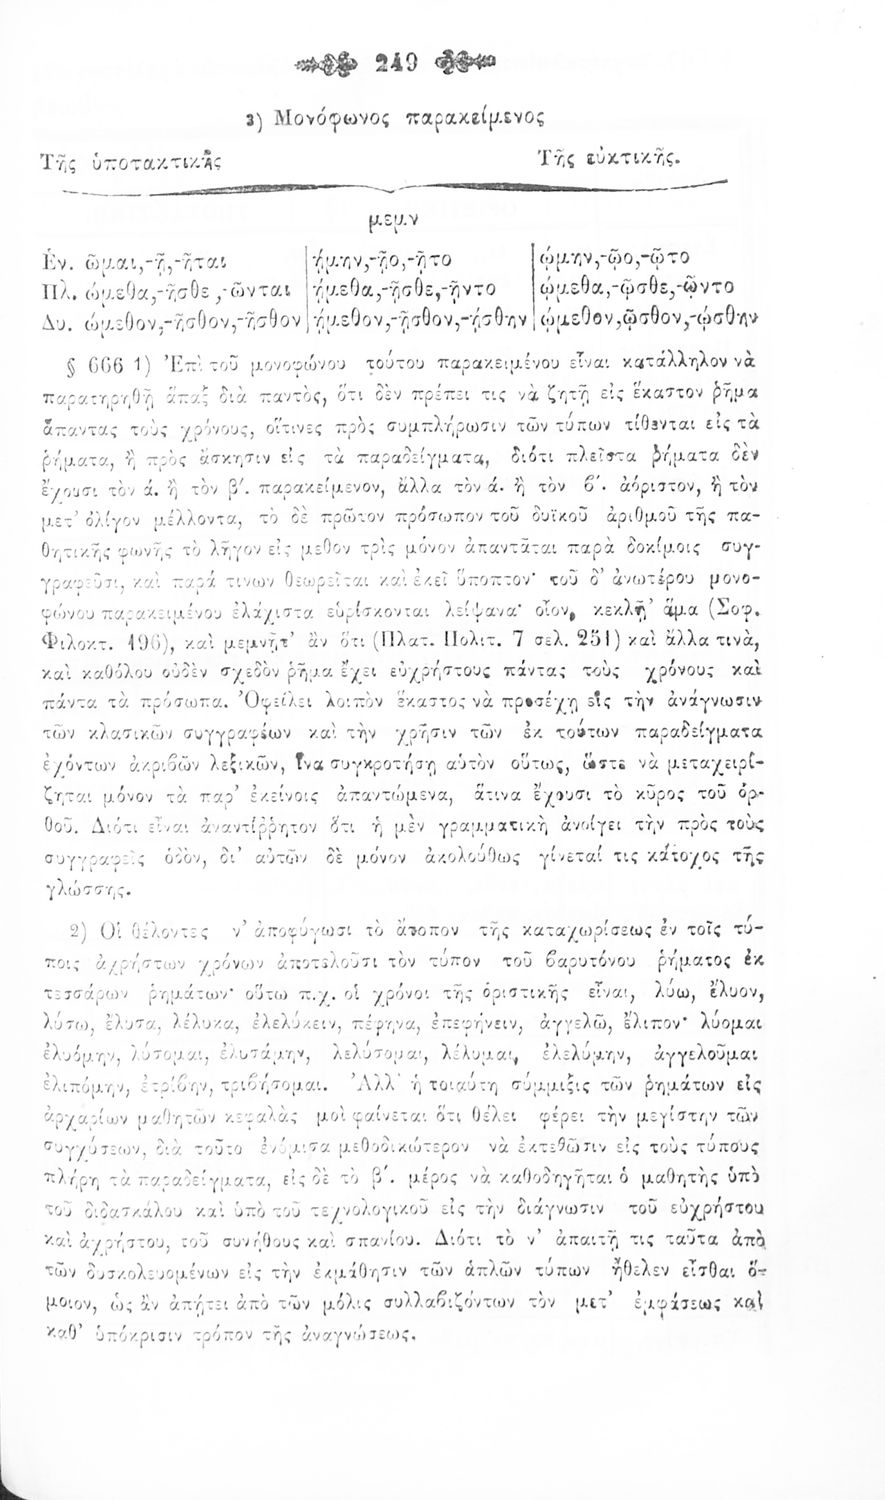 249
3) Μονόφωνος παρακείμενος
Τῆς ὑποτακτικῆς Τῆς εὐκτικῆς.
μεμν
Ἑν. ῶμαι,-ῇ,-ῆται ῄμην,-ῇο,-ῇτο ῴμην,-ῷο,-ῷτο
Πλ. ώμεθα,-ῆσθε,-ῶνται ῄμεθα,-ῇσθε,-ῇντο ῴμεθα,-ῷσθε,-ῷντο
Δυ. ώμεθον,-ῆσθον,-ῆσθον ῄμεθον,-ῇσθον,-ῄσθην ῴμεθον,ῷσθον,-ῴσθην
§ 666 1) Ἐπὶ τοῦ μονοφώνου τούτου παρακειμένου εἶναι κατάλληλον νὰ
παρατηρηθῇ ἅπαξ διὰ παντὸς, ὅτι δὲν πρέπει τις νὰ ζητῇ εἰς ἕκαστον ῥῆμα
ἅπαντας τοὺς χρόνους, οἵτινες πρὸς συμπλήρωσιν τῶν τύπων τίθενται εἰς τὰ
ῥήματα, ἢ πρὸς ἄσκησιν εἰς τὰ παραδείγματα, διότι πλεῖστα ῥήματα δὲν
ἔχουσι τὸν ά. ἢ τὸν β΄. παρακείμενον, ἄλλα τὸν ά. ἢ τὸν β΄. ἀόριστον, ἢ τὸν
μετ’ ὀλίγον μέλλοντα, τὸ δὲ πρῶτον πρόσωπον τοῦ δυϊκοῦ ἀριθμοῦ τῆς πα-
θητικῆς φωνῆς τὸ λῆγον εἰς μεθον τρὶς μόνον ἀπαντᾶται παρὰ δοκίμοις συγ-
γραφεῦσι, καὶ παρά τινων θεωρεῖται καὶ ἐκεῖ ὕποπτον· τοῦ δ’ ἀνωτέρου μονο-
φώνου παρακειμένου ἐλάχιστα εὑρίσκονται λείψανα· οἷον, κεκλῇ’ ἅμα (Σοφ.
Φιλοκτ. 496), καὶ μεμνῇτ’ ἂν ὅτι (Πλατ. Πολιτ. 7 σελ. 251) καὶ ἄλλα τινὰ,
καὶ καθόλου οὐδὲν σχεδὸν ῥῆμα ἔχει εὐχρήστους πάντας τοὺς χρόνους καὶ
πάντα τὰ πρόσωπα. Ὀφείλει λοιπὸν ἕκαστος νὰ προσέχῃ εἰς τὴν ἀνάγνωσιν
τῶν κλασικῶν συγγραφέων καὶ τὴν χρῆσιν τῶν ἐκ τούτων παραδείγματα
ἐχόντων ἀκριβῶν λεξικῶν, ἵνα συγκροτήσῃ αὑτὸν οὕτως, ὥστε νὰ μεταχειρί-
ζηται μόνον τὰ παρ’ ἐκείνοις ἀπαντώμενα, ἅτινα ἔχουσι τὸ κῦρος τοῦ ὀρ-
θοῦ. Διότι εἶναι ἀναντίῤῥητον ὅτι ἡ μὲν γραμματικὴ ἀνοίγει τὴν πρὸς τοὺς
συγγραφεῖς ὁδὸν, δι’ αὐτῶν δὲ μόνον ἀκολούθως γίνεταί τις κάτοχος τῆς
γλώσσης.
2) Οἱ θέλοντες ν’ ἀποφύγωσι τὸ ἄτοπον τῆς καταχωρίσεως ἐν τοῖς τύ-
ποις ἀχρήστων χρόνων ἀποτελοῦσι τὸν τύπον τοῦ βαρυτόνου ῥήματος ἐκ
τεσσάρων ῥημάτων· οὕτω π.χ. οἱ χρόνοι τῆς ὁριστικῆς εἶναι, λύω, ἔλυον,
λύσω, ἔλυσα, λέλυκα, ἐλελύκειν, πέφηνα, ἐπεφήνειν, ἀγγελῶ, ἔλιπον· λύομαι
ἐλυόμην, λύσομαι, ἐλυσάμην, λελύσομαι, λέλυμαι, ἐλελύμην, ἀγγελοῦμαι
ἐλιπόμην, ἐτρίβην, τριβήσομαι. Ἀλλ’ ἡ τοιαύτη σύμμιξις τῶν ῥημάτων εἰς
ἀρχαρίων μαθητῶν κεφαλὰς μοὶ φαίνεται ὅτι θέλει φέρει τὴν μεγίστην τῶν
συγχύσεων, διὰ τοῦτο ἐνόμισα μεθοδικώτερον νὰ ἐκτεθῶσιν εἰς τοὺς τύπους
πλήρη τὰ παραδείγματα, εἰς δὲ τὸ β΄. μέρος νὰ καθοδηγῆται ὁ μαθητὴς ὑπὸ
τοῦ διδασκάλου καὶ ὑπὸ τοῦ τεχνολογικοῦ εἰς τὴν διάγνωσιν τοῦ εὐχρήστου
καὶ ἀχρήστου, τοῦ συνήθους καὶ σπανίου. Διότι τὸ ν’ ἀπαιτῇ τις ταῦτα ἀπὸ
τῶν δυσκολευομένων εἰς τὴν ἐκμάθησιν τῶν ἁπλῶν τύπων ἤθελεν εἶσθαι ὅ-
μοιον, ὡς ἂν ἀπῄτει ἀπὸ τῶν μόλις συλλαβιζόντων τὸν μετ’ ἐμφάσεως καὶ
καθ’ ὑπόκρισιν τρόπον τῆς ἀναγνώσεως.